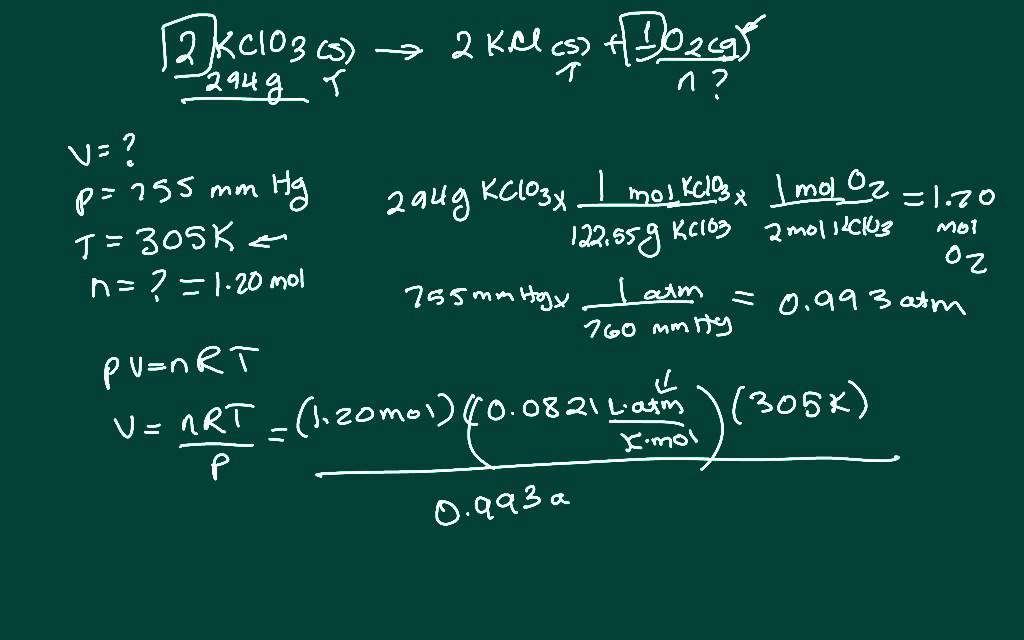 2 KClO3 (s) → 2 KCl (s) + 1 O2 (g)
294g ↑ ↑ n?
V = ?
P = 755 mm Hg
T = 305K ←
n = ? = 1.20 mol
294g KClO3 x 1 mol KClO3 / 122.55g KClO3 x 1 mol O2 / 2 mol KClO3 = 1.20 mol O2
755 mm Hg x 1 atm / 760 mm Hg = 0.993 atm
PV = nRT
V = nRT / P = (1.20 mol) (0.0821 L·atm / K·mol) (305K)
0.993 a